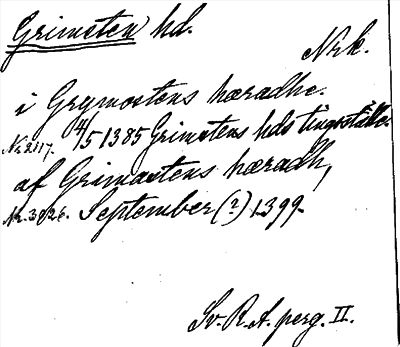 Grimsten hd.
Nrk.
i Grymostens hæradhe.
Nr. 2117. 4/5 1385 Grimstens hds tingsställe.
af Grimastens hæradh,
Nr. 3026. September (?) 1399.
Sv. R. A. perg. II.